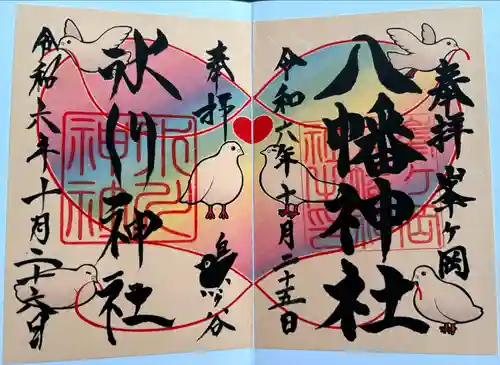 奉拝 峯ヶ岡
八幡神社
令和六年十月二十五日
奉拝
鳩ヶ谷
氷川神社
令和六年十月二十六日